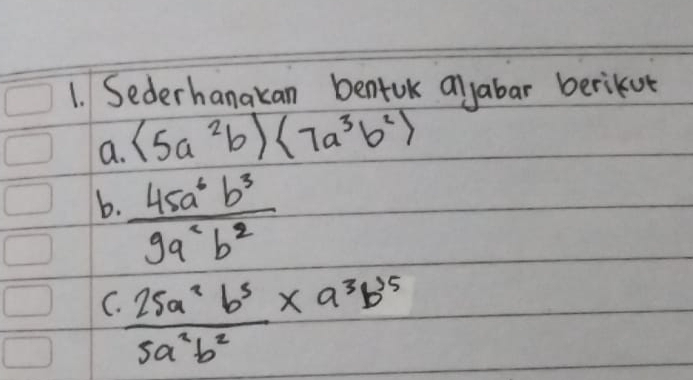 1. Sederhanakan bentuk aljabar berikut
a. (5a²b)(7a³b²)
b. 45a⁶ b³
9a² b²
c. 25a² b⁵ × a³b³⁵
5a²b²